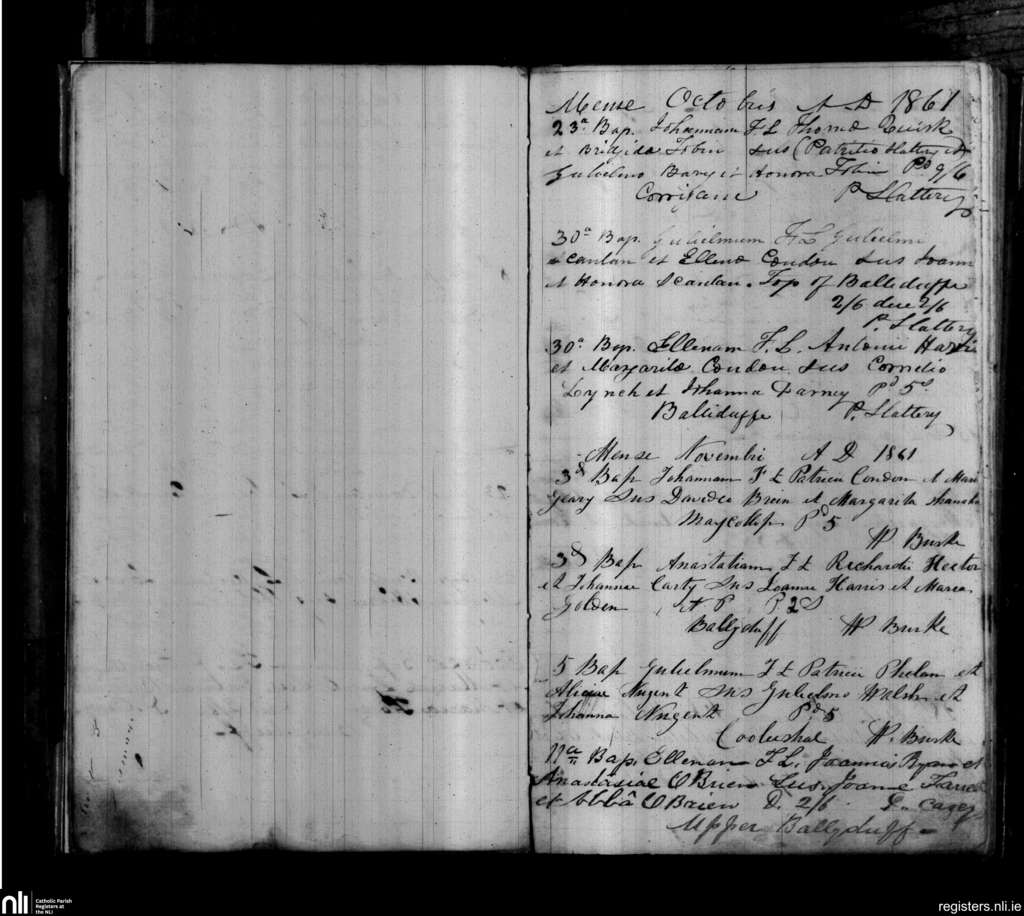 Mense Octobris A D 1861
23ª Bap. Johannam F L Thomæ Quirk
et Brigidæ Tobin Sus (Patritio Slattery et
Gulielmo Bary et Honora Tobin Pd 9/6
P Slattery
30ª Bap. Gulielmum F. L Gulielmi
Scanlan et Ellenæ Condon Sus Joann
et Honora Scanlan. Top of Balliduffe
2/6 due 2/6
P. Slattery
30ª Bap. Ellenam F. L. Antonii
et Margaritæ Condon Sus Cornelio
Lynch et Johanna Darney Pd 5s
Balliduffe P. Slattery
Mense Novembri A D 1861
3d Bap Johannam F L Patricii Condon et Mari
Geary Sus Davide Brein et Margarita
Maycollop Pd 5
W Burke
3d Bap Anastatiam F L Richardi Hector
et Johannæ Carty Sus Joanne Harris et Maria
Golden N P P 2S
Ballyduff W Burke
5 Bap Gulielmum F L Patricii Phelan et
Aliciæ Nugent Sus Gulielmo Walsh et
Johanna Nugent Pd 5
Cooleshal W. Burke
11ª Bap. Ellenam F L. Joannis Ryan et
Anastasiae O Brien Sus. Joanne
et Abbâ O Brien D. 2/6 D. Casey
Upper Ballyduff
nli
Catholic Parish
Registers at
the NLI
registers.nli.ie